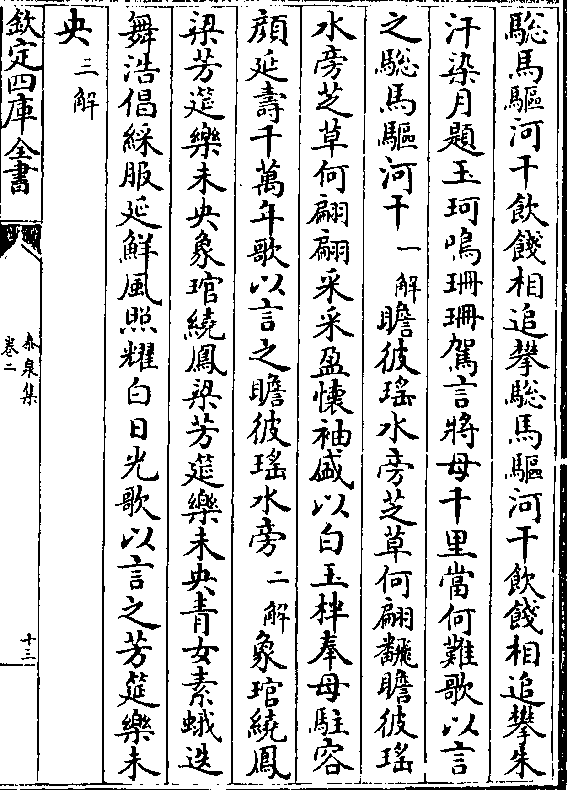 驄馬驅河干飲餞相追攀驄馬驅河干飲餞相追攀朱
汗染月題玉珂鳴珊珊駕言將母千里當何難歌以言
之驄馬驅河干一解瞻彼瑶水旁芝草何翩飜瞻彼瑶
水旁芝草何翩翩采采盈懷袖盛以白玉柈奉母駐容
顔延壽千萬年歌以言之瞻彼瑶水旁二解象琯繞鳳
梁芳筵樂未央象琯繞鳳梁芳筵樂未央青女素蛾迭
舞浩倡綵服延鮮風照耀白日光歌以言之芳筵樂未
央三解
欽定四庫全書
泰泉集
卷二
十三